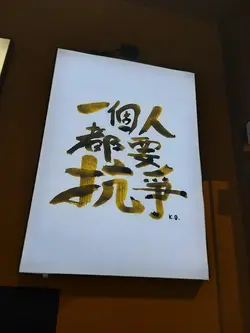 一個人
都要
抗爭
K.O.